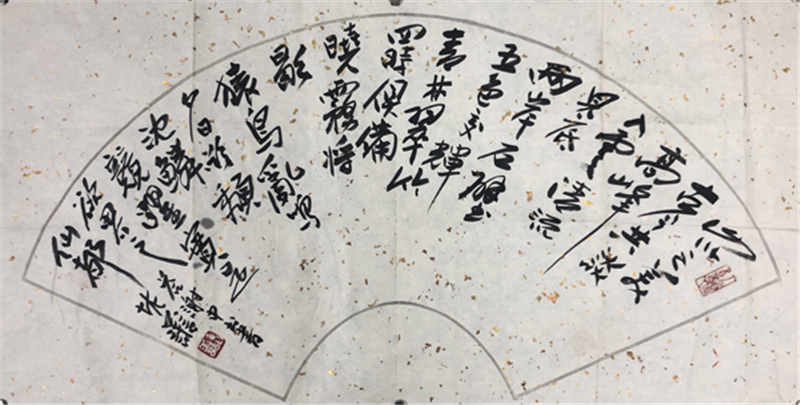 山川之美
古来共談
高峰
入雲清流
見底
兩岸石壁
五色交輝
青林翠竹
四時俱備
曉霧將
歇
猿鳥亂鳴
夕日欲頹
沈鱗
競躍實是
欲界之
仙都
答謝中書書